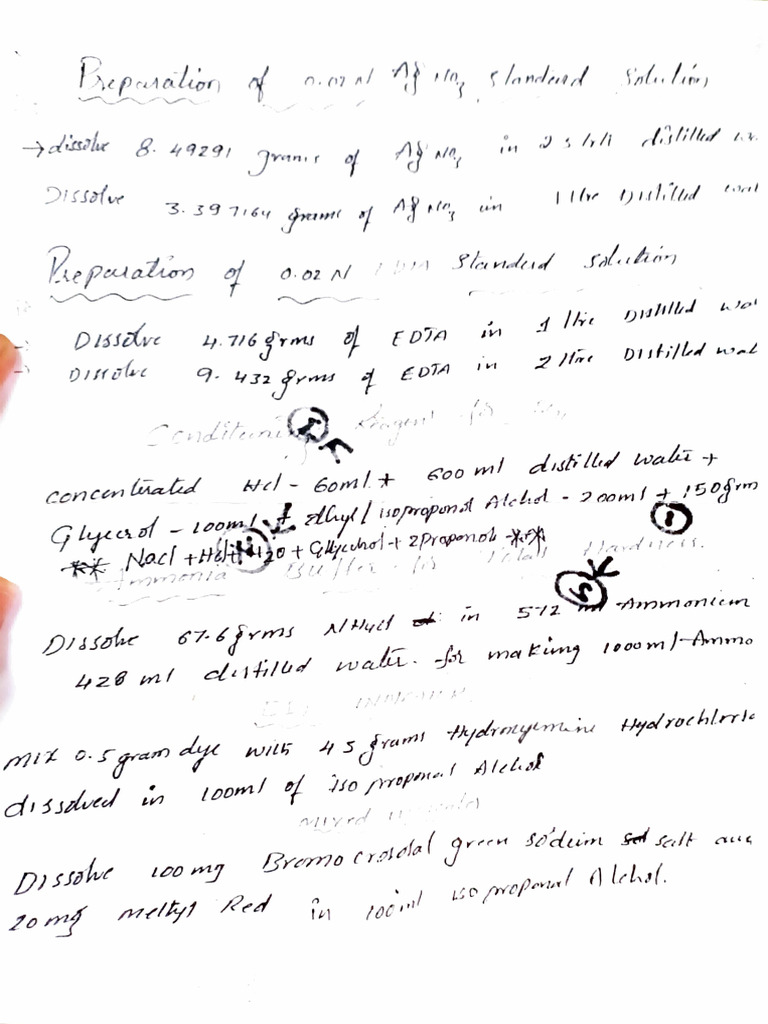 Preparation of 0.02 N AgNO3 Standerd Solution
→ dissolve 8.49291 grams of AgNO3 in distilled
Dissolve 3.397164 grams of AgNO3 in 1 litre Distilled wat
Preparation of 0.02 N EDTA Standerd Solution
Dissolve 4.716 grms of EDTA in 1 litre Distilled wat
Dissolve 9.432 grms of EDTA in 2 litre Distilled wat
Conditioning Reagent for
concenterated Hcl - 60ml + 600 ml distilled water +
Glycerol - 100ml + Ethyl / isoproponol Alchol - 200ml + 150 grm
** Nacl + Hcl + H2O + Glycerol + 2 Propanol **
Ammonia Buffer for Total Hardness.
Dissolve 67.6 grms NH4cl in 572 ml Ammonium
428 ml distilled water. for making 1000ml Ammo
INDICATOR
mix 0.5 gram dye with 4.5 grams Hydroxyemine Hydrochloric
dissolved in 100ml of Iso proponal Alchol
mixed indicator
Dissolve 100 mg Bromo crosolal green sodium salt
20 mg methyl Red in 100ml iso proponal Alchol.